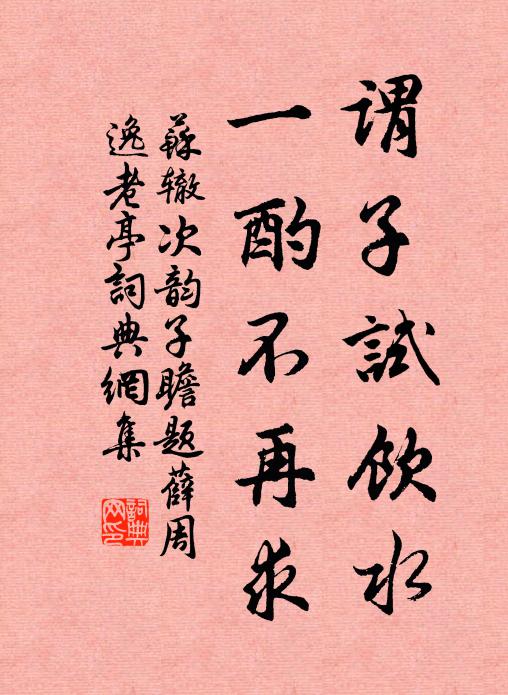 謂子試飲水
一酌不再求
蘇辙次韵子瞻题薛周
逸老亭詞典網集
詞典網印